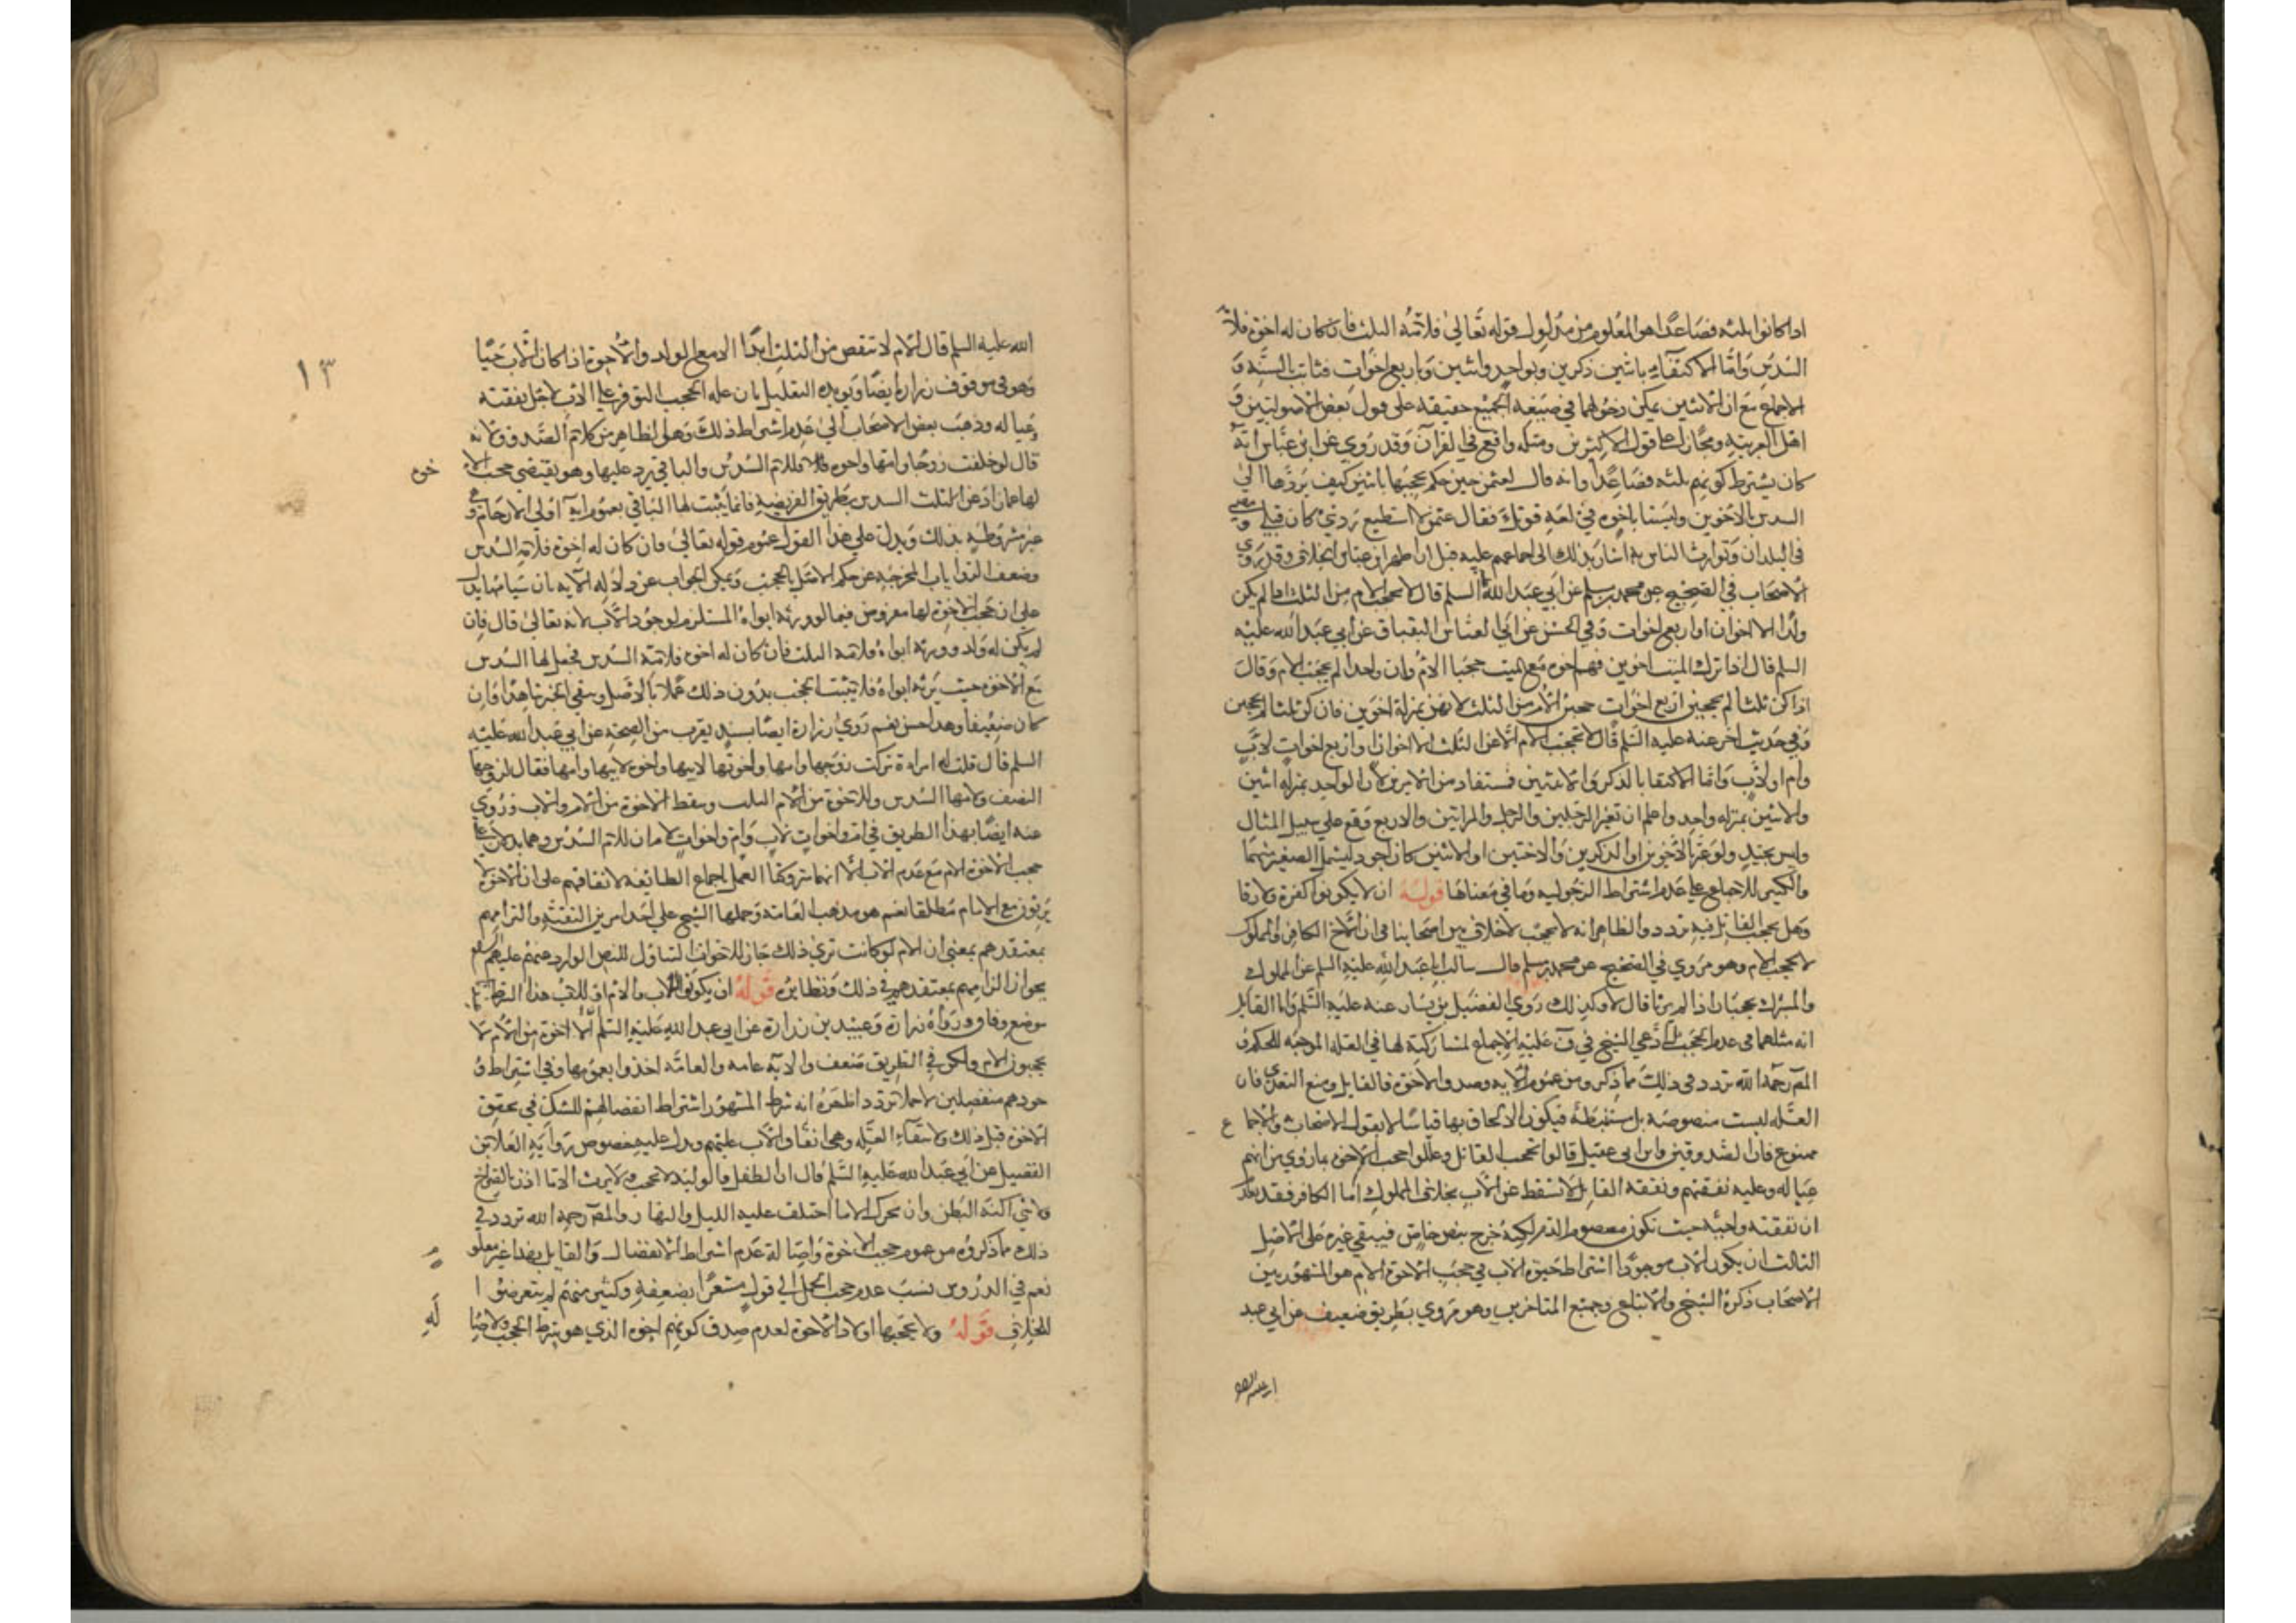 اذا كانوا ثلثه فصاعدا هو المعلوم من مدلول قوله تعالى فلامه الثلث فان كان له اخوة فلامه
السدس واما الاكتفاء باثنين ذكرين وبواحد واثنتين وباربع اخوات فثابت بالسنه و
الاجماع مع ان الاثنين يمكن دخولهما في صيغه الجمع حقيقه على قول بعض الاصوليين و
اهل العربيه ومجازا على قول الاكثرين ومثله واقع في القرآن وقد روي عن ابن عباس انه
كان يشترط كونهم ثلثه فصاعدا وانه قال لعثمن حين حكم بحجبها باثنين كيف تردها الى
السدس بالاخوين وليستا باخوه في لغه قومك فقال عثمن لا استطيع رد شئ كان قبلي ومضى
في البلدان وتوارث الناس به اشار بذلك الى اجماعهم عليه قبل ان اظهر ابن عباس الخلاف وقد روى
الاصحاب في الصحيح عن محمد بن مسلم عن ابي عبد الله السلم قال لا يحجب الام من الثلث اذا لم يكن
ولد الا اخوان او اربع اخوات وفي الحسن عن ابي العباس البقباق عن ابي عبد الله عليه
السلم قال اذا ترك الميت اخوين فهم اخوه مع الميت حجبا الام وان واحدا لم يحجب الام وقال
اذا كن ثلثا لم يحجبن اربع اخوات حجبن الام من الثلث لانهن بمنزلة اخوين فان كن ثلثا لم يحجبن
وفي حديث اخر عنه عليه السلم قال لا تحجب الام الا عن الثلث الا اخوان او اربع اخوات لاب
وام او لاب واما الاكتفا بالذكر والانثيين فمستفاد من الامرين لان الواحد بمنزله اثنين
والاثنين بمنزله واحد واعلم ان تعبير الرجلين والرجل والمراتين والاربع وقع على سبيل المثال
وليس بجيد ولو عبر بالاخوين او الذكرين والاختين او الانثيين كان اجود ليشمل الصغير منهما
والكبير للاجماع على عدم اشتراط الرجوليه وما في معناها قوله ان لا يكونوا كفرة ولا رقا
وهل يحجب القاتل فيه تردد والظاهر انه لا يحجب لا خلاف بين اصحابنا في ان الاخ الكافر والمملوك
لا يحجب الام وهو مروي في الصحيح عن محمد بن مسلم قال سالت ابا عبد الله عليه السلم عن المملوك
والمشرك يحجبان اذا لم يرثا قال لا وكذلك روى الفضيل بن يسار عنه عليه السلم واما القاتل
انه مثلهما في عدم الحجب بل ادعى الشيخ في ف عليه الاجماع لمشاركته لها في العله الموجبه للحكم و
المص رحمه الله تردد في ذلك مما ذكر ومن عموم الايه وصدق الاخوة فالقاتل ومنع التعدي فان
العله ليست منصوصة بل مستنبطة فيكون الالحاق بها قياسا لا يقول الاصحاب والاجماع
ممنوع فان الصدوقين وابن ابي عقيل قالوا تحجب القاتل وعللوا حجب الاخوه بما روي من انهم
عياله وعليه نفقتهم ونفقة القاتل لا تسقط عن الاب بخلاف المملوك اما الكافر فقد يقال
ان نفقته واجبه حيث تكون معصوم الدم لكنه خرج بنص خاص فيبقى غيره على الاصل
الثالث ان يكون الاب موجودا اشتراط حيوة الاب في حجب الاخوة الام هو المشهور بين
الاصحاب ذكره الشيخ والاتباع وجميع المتاخرين وهو مروي بطريق ضعيف عن ابي عبد
١٣
الله عليه السلم قال الام لا تنقص من الثلث ابدا الا مع الولد والاخوة اذا كان الاب حيا
وهو في موقوف زراره ايضا ويويده التعليل بان عله الحجب التوفر على الاب لاجل نفقته
عياله وذهب بعض الاصحاب الى عدم اشتراط ذلك وهو الظاهر من كلام الصدوق لانه
قال لو خلفت زوجا وامها واخوه فللام السدس والباقي يرد عليها وهو يقتضي حجب الاخوة
لها عما زاد عن الثلث السدس بطريق الفريضه فانما يثبت لها الباقي بعموم اية اولي الارحام
غير مشروطه بذلك ويدل على هذا القول عموم قوله تعالى فان كان له اخوة فلامه السدس
وضعف الروايات المخرجه عن حكم الاصل بالحجب ويمكن الجواب عن دلاله الآيه بان سياقها يدل
على ان حجب الاخوة لها مفروض فيما لو ورثه ابواه المستلزم لوجود الاب لانه تعالى قال فان
لم يكن له ولد وورثه ابواه فلامه الثلث فان كان له اخوه فلامه السدس فجعل لها السدس
مع الاخوة حيث يرثه ابواه فلا يثبت الحجب بدون ذلك عملا بالاصل ويبقى الخبر شاهدا وان
كان ضعيفا وهذا حسن نعم روى زرارة ايضا بسند يقرب من الصحة عن ابي عبد الله عليه
السلم قال قلت له امراة تركت زوجها وامها واخوتها لابيها واخوة لابيها وامها فقال لزوجها
النصف ولامها السدس وللاخوة من الام الثلث وسقط الاخوة من الام والاب وروى
عنه ايضا بهذا الطريق في ام واخوات لاب وام واخوات لام ان للام السدس وهما يدلان على
حجب الاخوة الام مع عدم الاب الا انهما متروكتا العمل باجماع الطايفه لاتفاقهم على ان الاخوة لا
يرثون مع الام مطلقا نعم هو مذهب العامه وحملها الشيخ على احد امرين التقية والزامهم
بمعتقدهم بمعنى ان الام لو كانت ترى ذلك جاز للاخوة التناول للنص الوارد عنهم عليهم السلم
بجواز الزامهم بمعتقدهم في ذلك ونظايره قوله ان يكونوا للاب والام او للاب هذا الشرط
موضع وفاق ورواه زرارة وعبيد بن زرارة عن ابي عبد الله عليه السلم الاخوة من الام لا
يحجبون الام ولكن في الطريق ضعف والايه عامه والعامه اخذوا بعمومها وفي اشتراط و
جودهم منفصلين لا حملا تردد اظهره انه شرط المشهور اشتراط انفصالهم للشك في تحقق
الاخوة قبل ذلك ولانتفاء العله وهي انفاق الاب عليهم ويدل عليه خصوص رواية العلا بن
الفضيل عن ابي عبد الله عليه السلم قال ان الطفل والوليد لا يحجب ولا يرث الا ما اذن بالصراخ
ولا شي اكنه البطن وان تحرك الا ما اختلف عليه الليل والنهار والمص رحمه الله تردد في
ذلك مما ذكروه من عموم حجب الاخوة واصالة عدم اشتراط الانفصال والقايل بهذا غير معلوم
نعم في الدروس نسب عدم حجب الحمل الى قول مشعرا بضعفه وكثير منهم لم يتعرضوا
للخلاف قوله ولا يحجبها اولاد الاخوة لعدم صدق كونهم اخوه الذي هو شرط الحجب ولاصالة